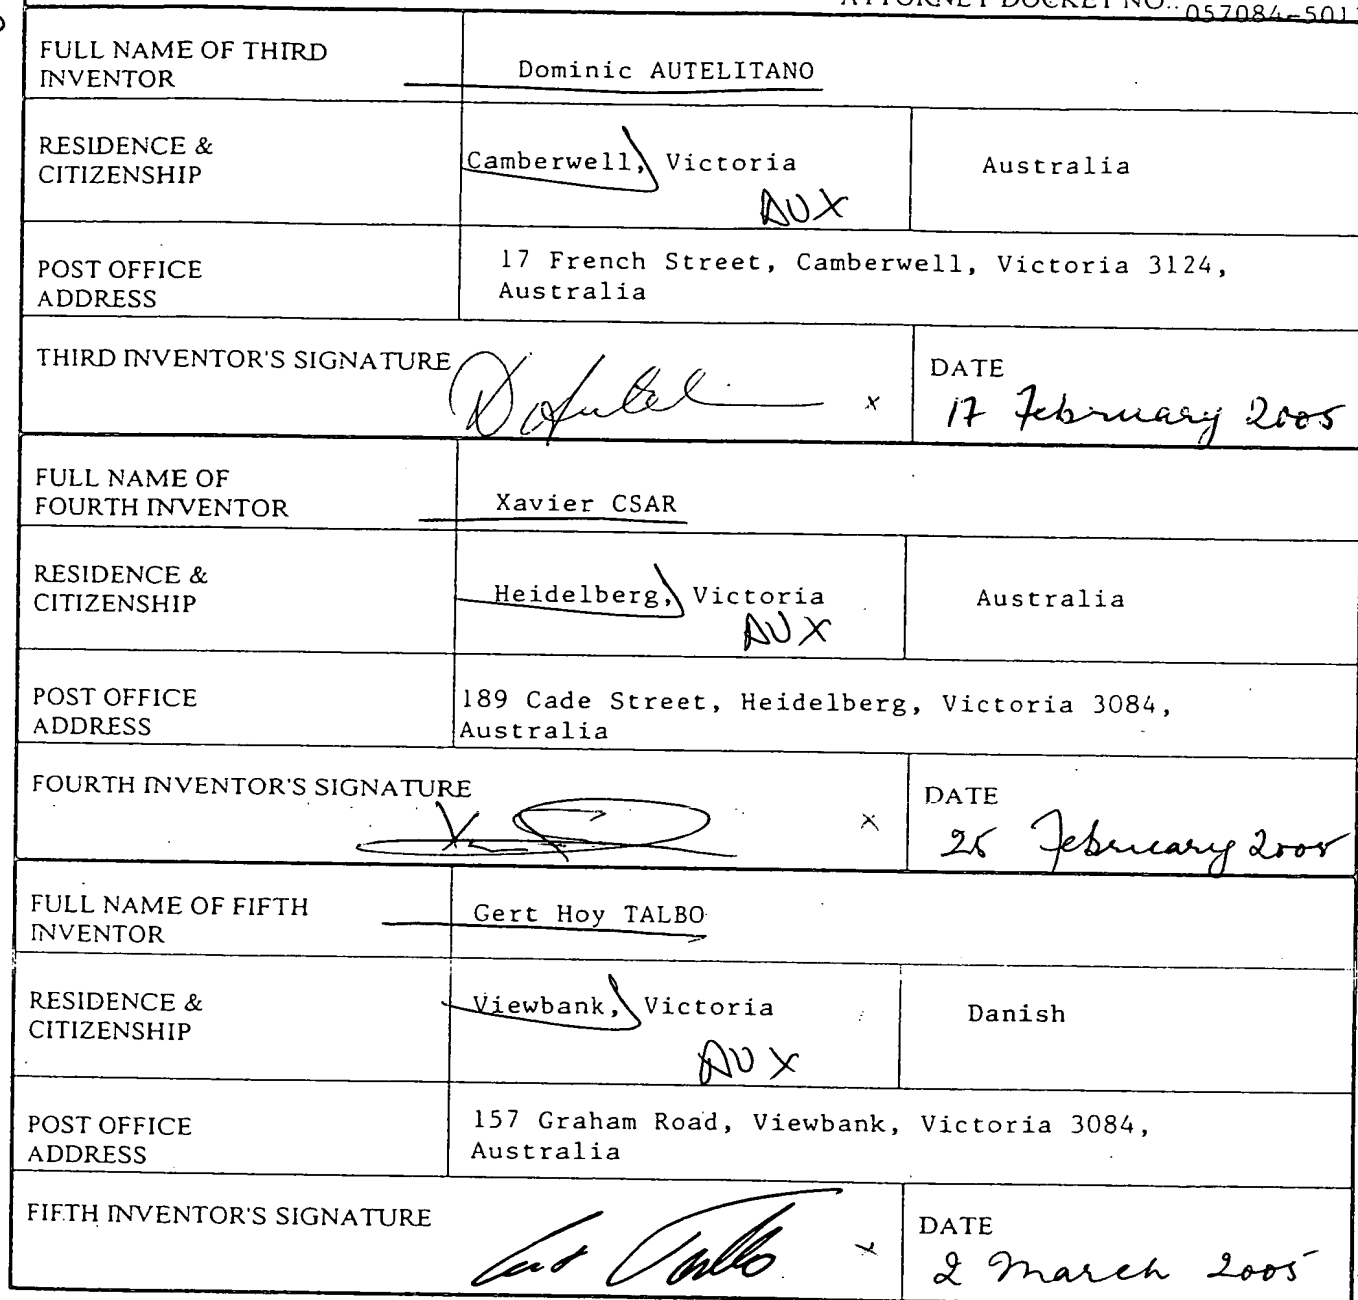 ATTORNEY DOCKET NO.: 057084-501
FULL NAME OF THIRD
INVENTOR
Dominic AUTELITANO
RESIDENCE &
CITIZENSHIP
Camberwell, Victoria
AUX
Australia
POST OFFICE
ADDRESS
17 French Street, Camberwell, Victoria 3124,
Australia
THIRD INVENTOR'S SIGNATURE
x
DATE
17 February 2005
FULL NAME OF
FOURTH INVENTOR
Xavier CSAR
RESIDENCE &
CITIZENSHIP
Heidelberg, Victoria
AUX
Australia
POST OFFICE
ADDRESS
189 Cade Street, Heidelberg, Victoria 3084,
Australia
FOURTH INVENTOR'S SIGNATURE
x
DATE
25 February 2005
FULL NAME OF FIFTH
INVENTOR
Gert Hoy TALBO
RESIDENCE &
CITIZENSHIP
Viewbank, Victoria
AUX
Danish
POST OFFICE
ADDRESS
157 Graham Road, Viewbank, Victoria 3084,
Australia
FIFTH INVENTOR'S SIGNATURE
Gert Talbo
x
DATE
2 March 2005